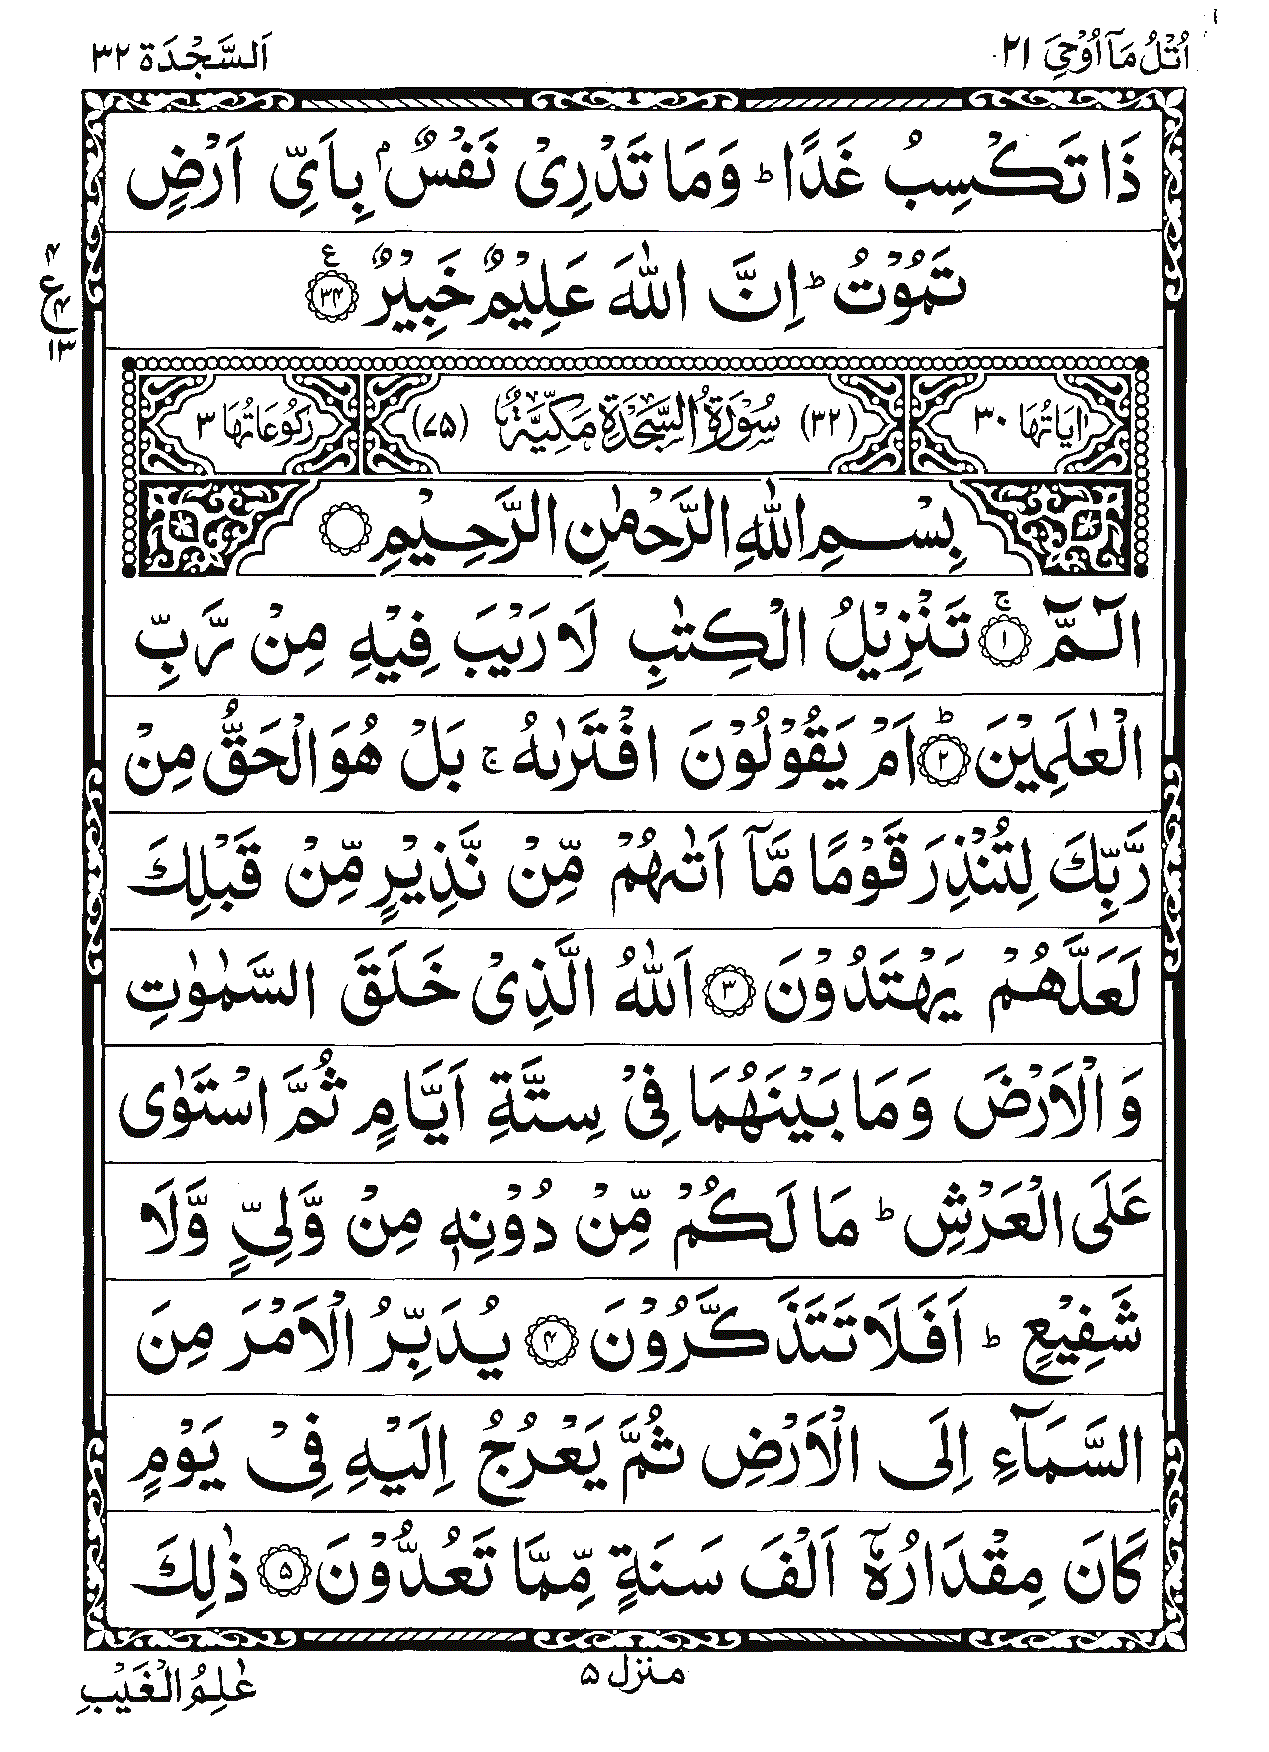 اُتْلُ مَاۤ اُوْحِيَ ٢١
اَلسَّجْدَة ٣٢
ذَا تَكْسِبُ غَدًا ؕ وَمَا تَدْرِىْ نَفْسٌۢ بِاَىِّ اَرْضٍ
تَمُوْتُ ؕ اِنَّ اللّٰهَ عَلِيْمٌ خَبِيْرٌ ﴿٣٤﴾ ع
٤
ع ٤
١٣
اٰيَاتُهَا ٣٠
(٣٢) سُوْرَةُ السَّجْدَةِ مَكِّيَّةٌ (٧٥)
رُكُوْعَاتُهَا ٣
بِسْمِ اللّٰهِ الرَّحْمٰنِ الرَّحِيْمِ
الٓـمّٓ ﴿١﴾ۚ تَنْزِيْلُ الْكِتٰبِ لَا رَيْبَ فِيْهِ مِنْ رَّبِّ
الْعٰلَمِيْنَ ﴿٢﴾ؕ اَمْ يَقُوْلُوْنَ افْتَرٰىهُ ۚ بَلْ هُوَ الْحَقُّ مِنْ
رَّبِّكَ لِتُنْذِرَ قَوْمًا مَّاۤ اَتٰىهُمْ مِّنْ نَّذِيْرٍ مِّنْ قَبْلِكَ
لَعَلَّهُمْ يَهْتَدُوْنَ ﴿٣﴾ اَللّٰهُ الَّذِىْ خَلَقَ السَّمٰوٰتِ
وَ الْاَرْضَ وَمَا بَيْنَهُمَا فِىْ سِتَّةِ اَيَّامٍ ثُمَّ اسْتَوٰى
عَلَى الْعَرْشِ ؕ مَا لَكُمْ مِّنْ دُوْنِهٖ مِنْ وَّلِىٍّ وَّلَا
شَفِيْعٍ ؕ اَفَلَا تَتَذَكَّرُوْنَ ﴿٤﴾ يُدَبِّرُ الْاَمْرَ مِنَ
السَّمَآءِ اِلَى الْاَرْضِ ثُمَّ يَعْرُجُ اِلَيْهِ فِىْ يَوْمٍ
كَانَ مِقْدَارُهٗۤ اَلْفَ سَنَةٍ مِّمَّا تَعُدُّوْنَ ﴿٥﴾ ذٰلِكَ
منزل ٥
عٰلِمُ الْغَيْبِ